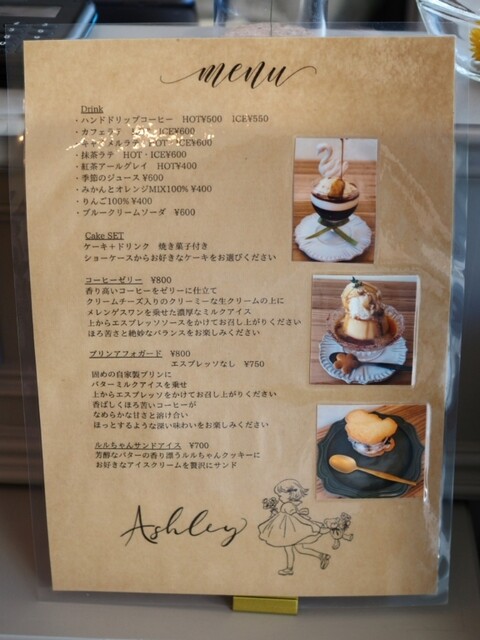 menu
Drink
・ハンドドリップコーヒー HOT¥500 ICE¥550
・カフェラテ HOT・ICE¥600
・キャラメルラテ HOT・ICE¥600
・抹茶ラテ HOT・ICE¥600
・紅茶アールグレイ HOT¥400
・季節のジュース ¥600
・みかんとオレンジMIX100% ¥400
・りんご100% ¥400
・ブルークリームソーダ ¥600
Cake SET
ケーキ＋ドリンク 焼き菓子付き
ショーケースからお好きなケーキをお選びください
コーヒーゼリー ¥800
香り高いコーヒーをゼリーに仕立て
クリームチーズ入りのクリーミーな生クリームの上に
メレンゲスワンを乗せた濃厚なミルクアイス
上からエスプレッソソースをかけてお召し上がりください
ほろ苦さと絶妙なバランスをお楽しみください
プリンアフォガード ¥800
エスプレッソなし ¥750
固めの自家製プリンに
バターミルクアイスを乗せ
上からエスプレッソをかけてお召し上がりください
香ばしくほろ苦いコーヒーが
なめらかな甘さと溶け合い
ほっとするような深い味わいをお楽しみください
ルルちゃんサンドアイス ¥700
芳醇なバターの香り漂うルルちゃんクッキーに
お好きなアイスクリームを贅沢にサンド
Ashley